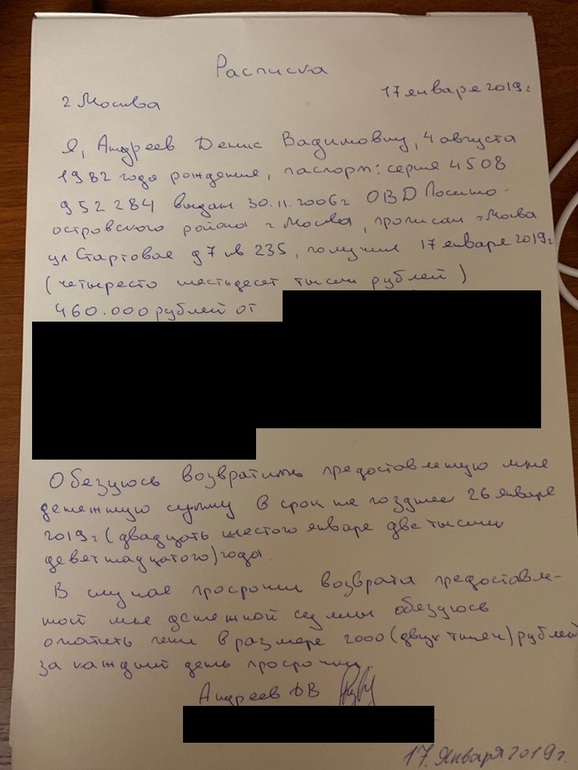 Расписка
г Москва 17 января 2019г
Я, Андреев Денис Вадимович, 4 августа
1982 года рождения, паспорт: серия 4508
952284 выдан 30.11.2006г ОВД Лосино-
островского района г Москва, прописан г Москва
ул Стартовая д7 кв 235, получил 17 января 2019г
(четыресто шестьдесят тысяч рублей)
460.000 рублей от
Обезуюсь возвратить предоставленную мне
денежную сумму в срок не позднее 26 января
2019г (двадцать шестого января две тысячи
девятнадцатого) года
В случае просрочки возврата предоставлен-
ной мне денежной суммы обезуюсь
оплатить пени в размере 2000 (двух тысяч) рублей
за каждый день просрочки
Андреев ДВ
17. Января 2019г.